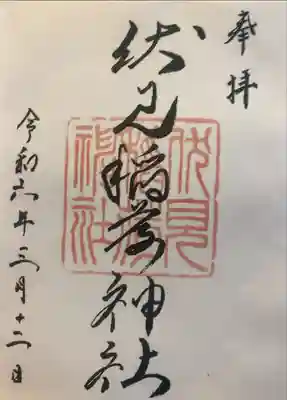 奉拝
伏見稲荷神社
令和六年三月十二日
伏見
神社